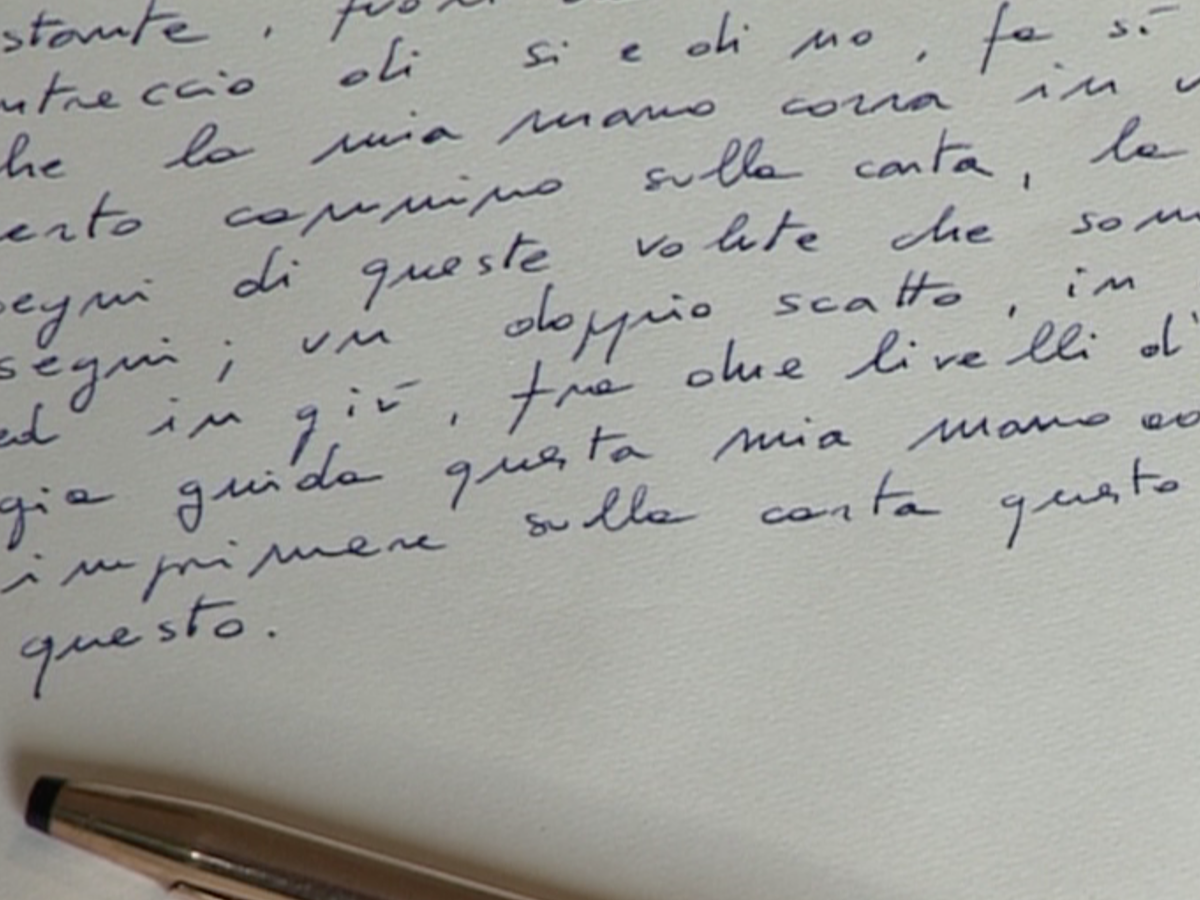 stante, fuori
ntreccio di si e di no, fa sì
he la mia mano corra in
erto cammino sulla carta,
segni di queste volute che sono
segni; un doppio scatto, in
ed in giù, tra due livelli d'
gia guida questa mia mano
imprimere sulla carta questo
questo.